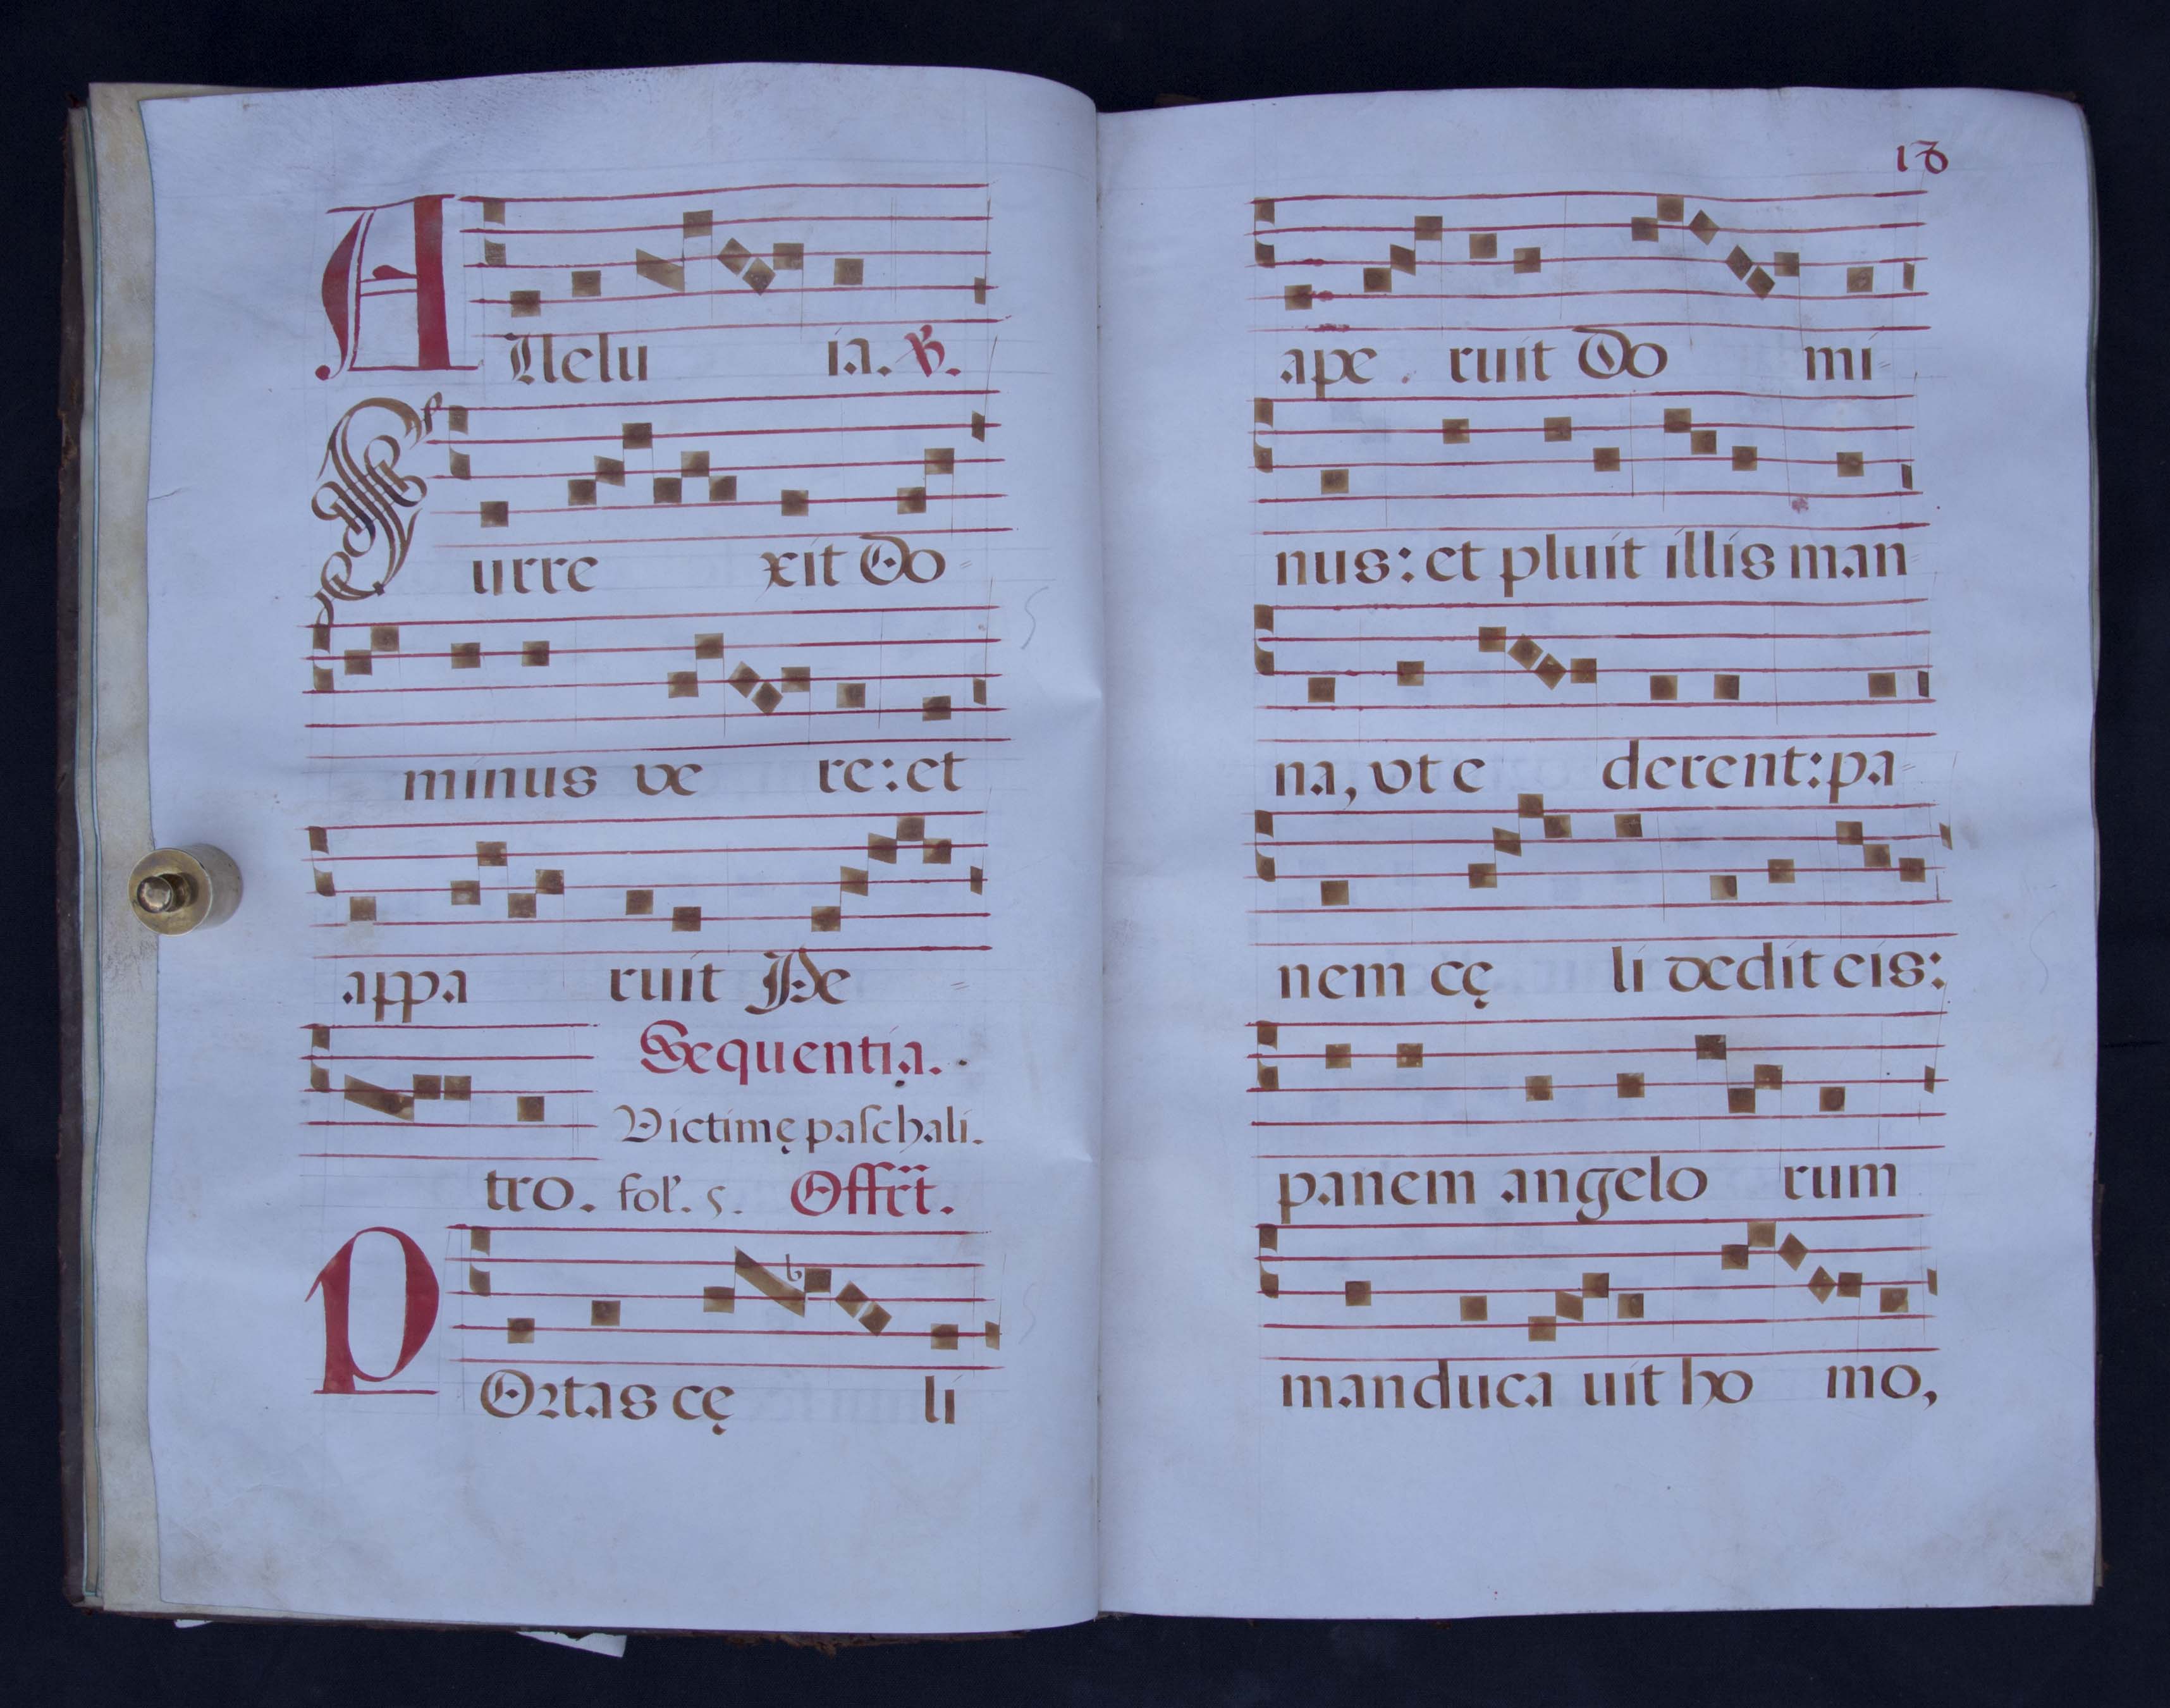 Allelu ia. ℣.
Surre xit Do=
minus ve re: et
appa ruit Pe=
Sequentia.
Victimę paſchali.
tro. fol. 5. Offrt.
POrtas cę li
18
ape . ruit Do mi=
nus: et pluit illis man
na, vt e derent: pa=
nem cę li dedit eis:
panem angelo rum
manduca uit ho mo,